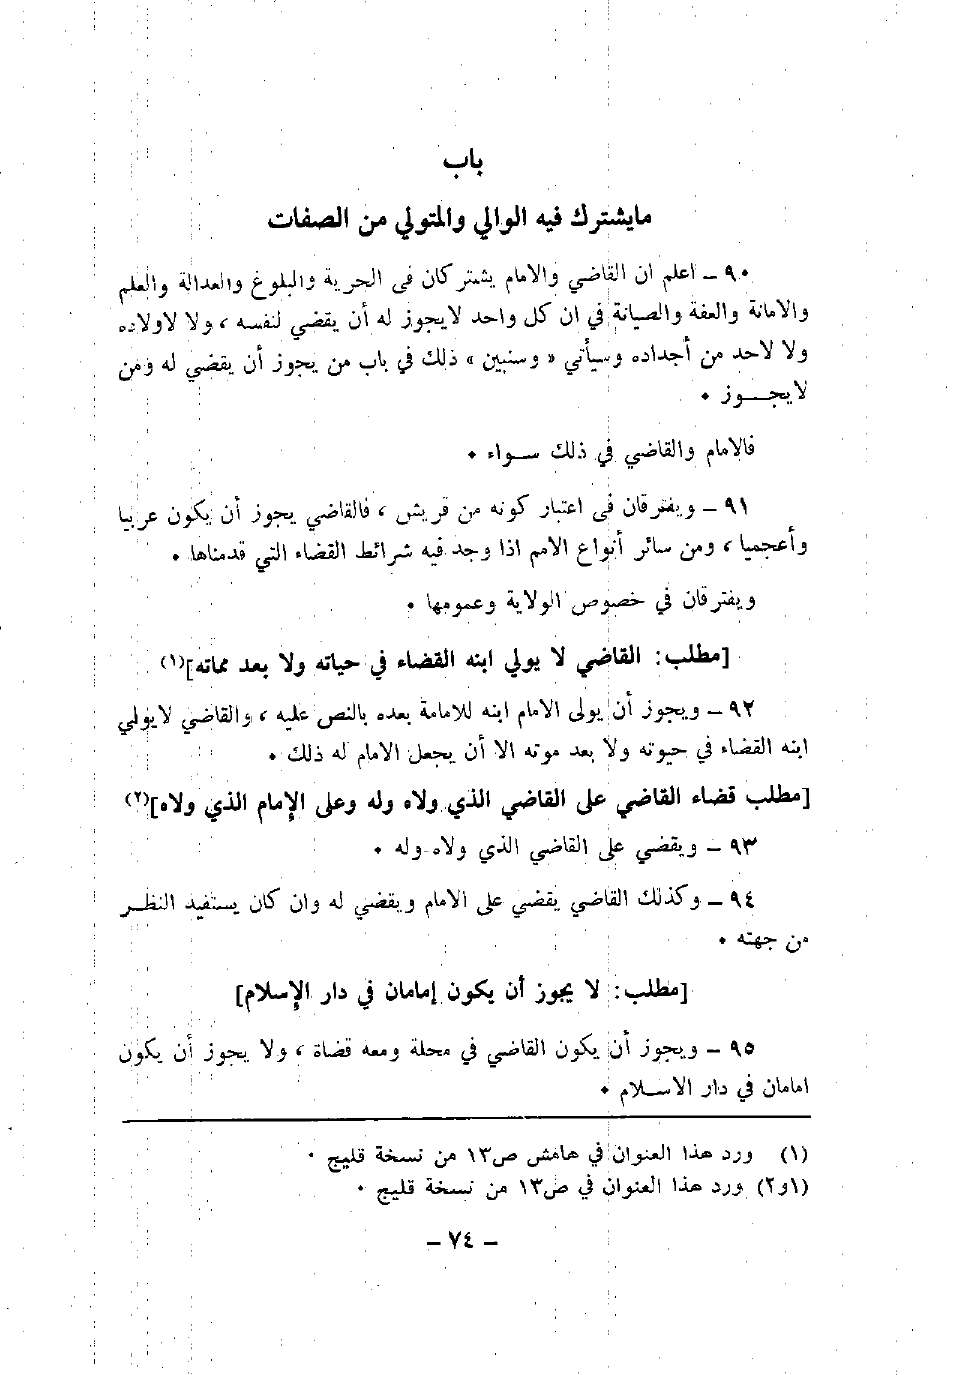 باب
مايشترك فيه الوالي والمتولي من الصفات
٩٠ – اعلم ان القاضي والامام يشتركان فى الحرية والبلوغ والعدالة والعلم
والامانة والعفة والصيانة في ان كل واحد لايجوز له أن يقضي لنفسه ، ولا لاولاده
ولا لاحد من أجداده وسيأتي « وسنبين » ذلك في باب من يجوز أن يقضي له ومن
لايجـــوز ٠
فالامام والقاضي في ذلك ســواء ٠
٩١ – ويفترقان فى اعتبار كونه من قريش ، فالقاضي يجوز أن يكون عربيا
وأعجميا ، ومن سائر أنواع الامم اذا وجد فيه شرائط القضاء التي قدمناها ٠
ويفترقان في خصوص الولاية وعمومها ٠
[مطلب: القاضي لا يولي ابنه القضاء في حياته ولا بعد مماته](١)
٩٢ – ويجوز أن يولى الامام ابنه للامامة بعده بالنص عليه ، والقاضي لايولي
ابنه القضاء في حيوته ولا بعد موته الا أن يجعل الامام له ذلك ٠
[مطلب قضاء القاضي على القاضي الذي ولاه وله وعلى الإمام الذي ولاه](٢)
٩٣ – ويقضي على القاضي الذي ولاه وله ٠
٩٤ – وكذلك القاضي يقضي على الامام ويقضي له وان كان يستفيد النظــر
من جهته ٠
[مطلب: لا يجوز أن يكون إمامان في دار الإسلام]
٩٥ – ويجوز أن يكون القاضي في محلة ومعه قضاة ، ولا يجوز أن يكون
امامان في دار الاســلام ٠
(١) ورد هذا العنوان في هامش ص١٣ من نسخة قليج ٠
(١و٢) ورد هذا العنوان في ص١٣ من نسخة قليج ٠
– ٧٤ –